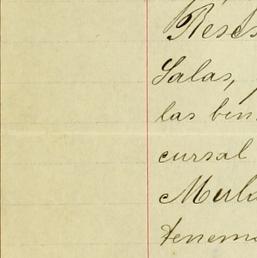 Salas,
las bin
cursal
Mula
tenemo